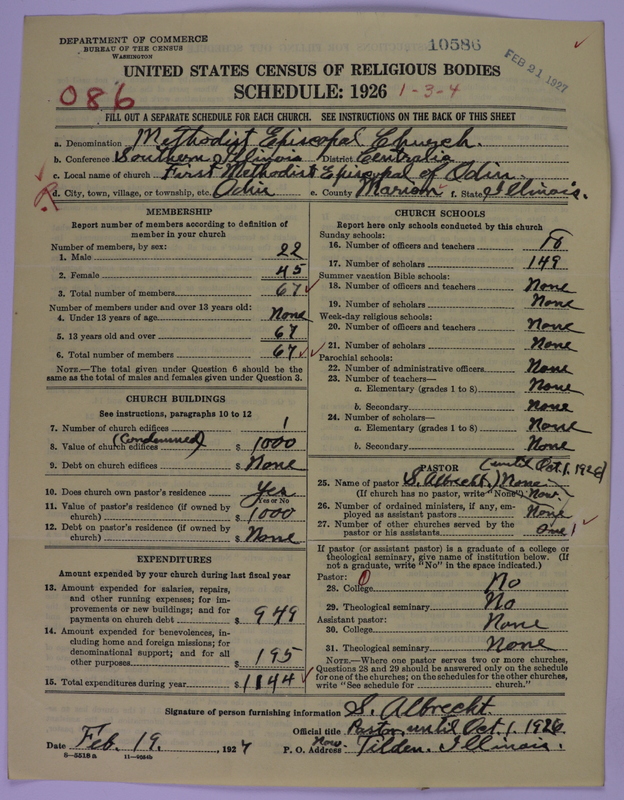 DEPARTMENT OF COMMERCE
BUREAU OF THE CENSUS
WASHINGTON
10586
FEB 21 1927
UNITED STATES CENSUS OF RELIGIOUS BODIES
SCHEDULE: 1926
086
1-3-4
FILL OUT A SEPARATE SCHEDULE FOR EACH CHURCH. SEE INSTRUCTIONS ON THE BACK OF THIS SHEET
a. Denomination Methodist Episcopal Church.
b. Conference Southern Illinois District Centralia
c. Local name of church First Methodist Episcopal of Odin.
d. City, town, village, or township, etc. Odin e. County Marion f. State Illinois.
MEMBERSHIP
Report number of members according to definition of
member in your church
Number of members, by sex:
1. Male 22
2. Female 45
3. Total number of members 67
Number of members under and over 13 years old:
4. Under 13 years of age None
5. 13 years old and over 67
6. Total number of members 67
NOTE.—The total given under Question 6 should be
same as the total of males and females given under Question 3.
CHURCH BUILDINGS
See instructions, paragraphs 10 to 12
7. Number of church edifices 1
(Condemned)
8. Value of church edifices $ 1000
9. Debt on church edifices $ None
10. Does church own pastor's residence Yes
Yes or No
11. Value of pastor's residence (if owned by
church) $ 1000
12. Debt on pastor's residence (if owned by
church) $ None
EXPENDITURES
Amount expended by your church during last fiscal year
13. Amount expended for salaries, repairs,
and other running expenses; for im-
provements or new buildings; and for
payments on church debt $ 949
14. Amount expended for benevolences, in-
cluding home and foreign missions; for
denominational support; and for all
other purposes $ 195
15. Total expenditures during year $ 1144
CHURCH SCHOOLS
Report here only schools conducted by this church
Sunday schools:
16. Number of officers and teachers
17. Number of scholars 149
Summer vacation Bible schools:
18. Number of officers and teachers None
19. Number of scholars None
Week-day religious schools:
20. Number of officers and teachers None
21. Number of scholars None
Parochial schools:
22. Number of administrative officers None
23. Number of teachers—
a. Elementary (grades 1 to 8) None
b. Secondary None
24. Number of scholars—
a. Elementary (grades 1 to 8) None
b. Secondary None
PASTOR (until Oct. 1. 1926)
25. Name of pastor S. Albrecht.) None.
(If church has no pastor, write "None") Now.
26. Number of ordained ministers, if any, em-
ployed as assistant pastors None
27. Number of other churches served by the
pastor or his assistants One 1
If pastor (or assistant pastor) is a graduate of a college or
theological seminary, give name of institution below. (If
not a graduate, write "No" in the space indicated.)
Pastor: 0
28. College No
29. Theological seminary No
Assistant pastor:
30. College None
31. Theological seminary None
NOTE.—Where one pastor serves two or more churches,
Questions 28 and 29 should be answered only on the schedule
for one of the churches; on the schedules for the other churches,
write "See schedule for church."
Signature of person furnishing information S. Albrecht.
Official title Pastor, until Oct. 1. 1926.
Date Feb. 19, 1927
Now.
P. O. Address Tilden. Illinois.
8-5518 a 11-9254b